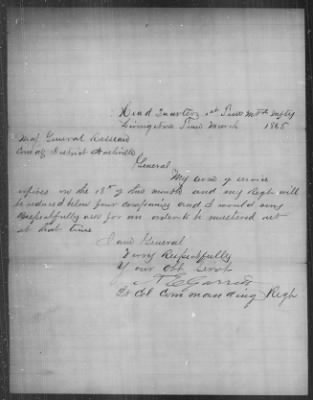 Head Quarters 1st Tenn Mtd Infty
Livingston Tenn March 1865
Maj General
Comdg District Nashville
General
My term of service
expires on the of this month and my Regt will
be reduced below four companies and I would very
Respectfully ask for an order to be mustered out
at that time
I am General
Very Respectfully
Your Obt Servt
A E Garrett
Lt Col Commanding Regt